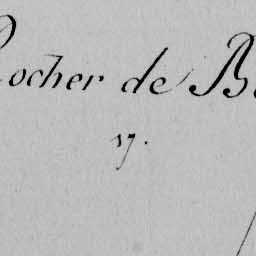 Rocher de B
17.